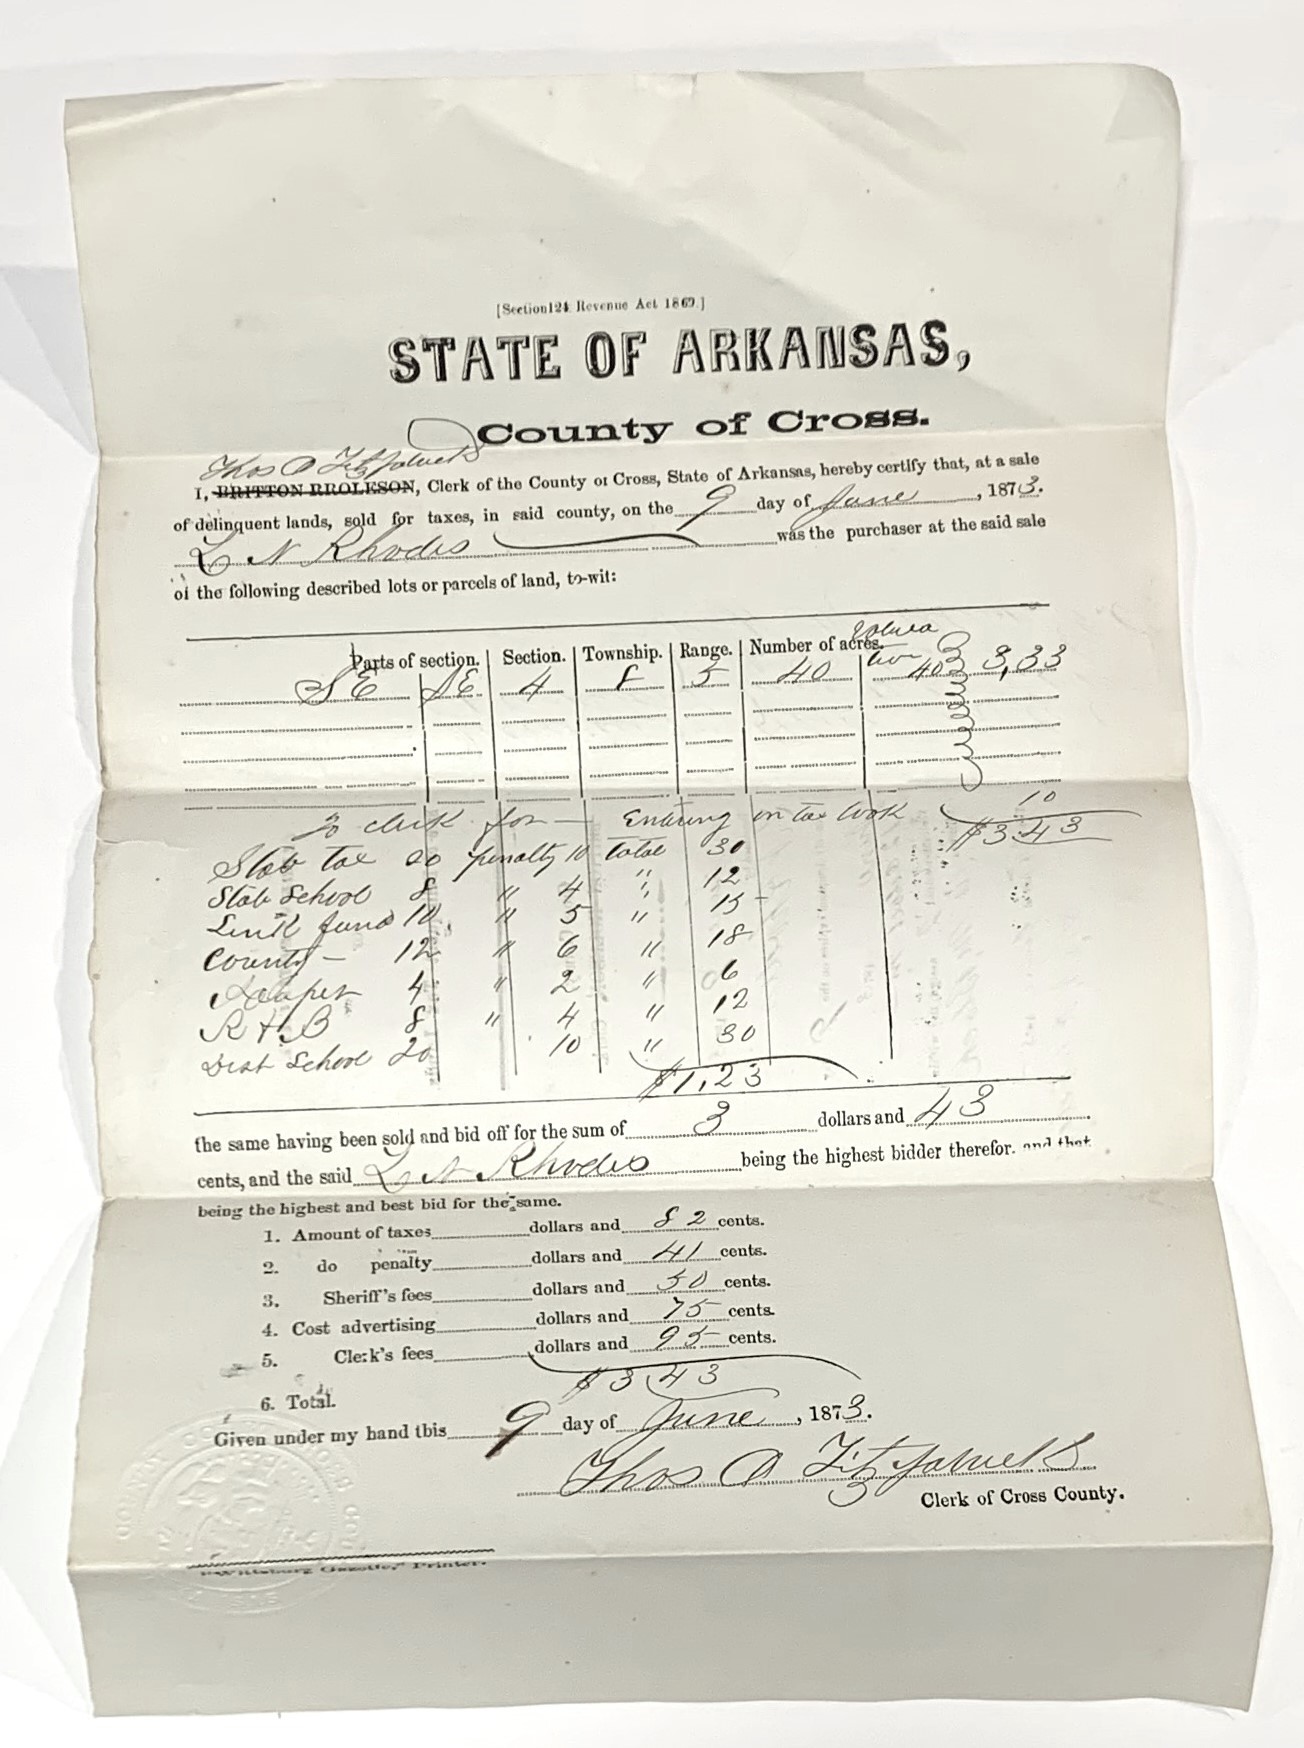 [Section 124 Revenue Act 1869.]
STATE OF ARKANSAS,
County of Cross.
Thos O Fitzpatrick
I, BRITTON RROLESON, Clerk of the County of Cross, State of Arkansas, hereby certify that, at a sale
of delinquent lands, sold for taxes, in said county, on the 9 day of June, 1873.
L N Rhodes was the purchaser at the said sale
of the following described lots or parcels of land, to-wit:
Parts of section. Section. Township. Range. Number of acres.
SE SE 4 8 5 40 40 3,33
10
To clerk for — Entering on tax book $3.43
State tax 20 penalty 10 total 30
State School 8 " 4 " 12
Sink fund 10 " 5 " 15
County — 12 " 6 " 18
Pauper 4 " 2 " 6
R & B 8 " 4 " 12
Dist School 20 10 " 30
$1,23
the same having been sold and bid off for the sum of 3 dollars and 43
cents, and the said L N Rhodes being the highest bidder therefor. and that
being the highest and best bid for the same.
1. Amount of taxes dollars and 82 cents.
2. do penalty dollars and 41 cents.
3. Sheriff's fees dollars and 50 cents.
4. Cost advertising dollars and 75 cents.
5. Clerk's fees dollars and 95 cents.
$3.43
6. Total.
Given under my hand this 9 day of June, 1873.
Thos O Fitzpatrick
Clerk of Cross County.
"Wittsburg Gazette," Printer.